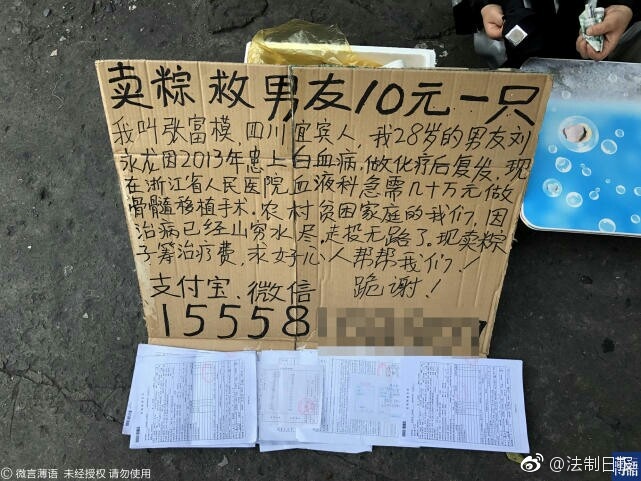 卖粽救男友10元一只
我叫张富模,四川宜宾人,我28岁的男友刘
永龙因2013年患上白血病,做化疗后复发,现
在浙江省人民医院血液科急需几十万元做
骨髓移植手术。农村贫困家庭的我们,因
治病已经山穷水尽,走投无路了。现卖粽
子筹治疗费,求好心人帮帮我们!
支付宝、微信 跪谢!
15558
© 微言薄语 未经授权 请勿使用
@法制日报